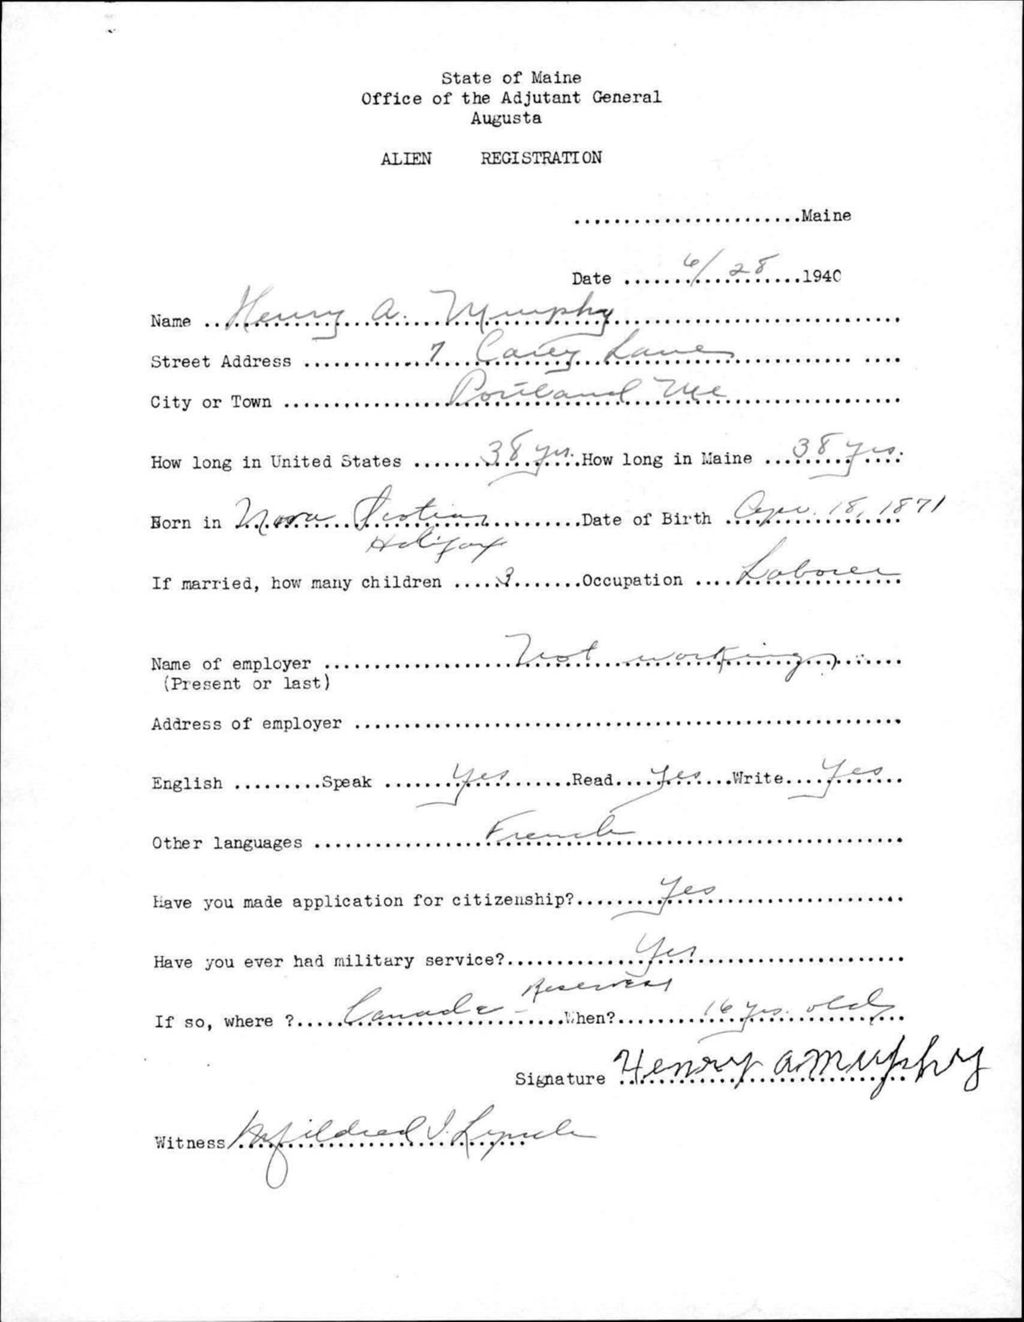 State of Maine
Office of the Adjutant General
Augusta
ALIEN REGISTRATION
.......................Maine
Date ........6/28........1940
Name ..Henry A. Murphy..............................
Street Address ............7 Carey Lane.................. ....
City or Town .................Portland Me..................
How long in United States .......38 yrs..How long in Maine ...38 yrs.
Born in Nova Scotia..........Date of Birth ..Apr. 18, 1871
Halifax
If married, how many children ....3.......Occupation ....Laborer
Name of employer ...................Not working.......
(Present or last)
Address of employer .......................................................
English .........Speak .......Yes.........Read....Yes...Write....Yes..
Other languages .................French...........................
Have you made application for citizenship?........Yes...................
Have you ever had military service?.............Yes.....................
Reserves
If so, where ?.....Canada - ........When?.........16 yrs. old
Signature Henry A Murphy
Witness Mildred I. Lynch